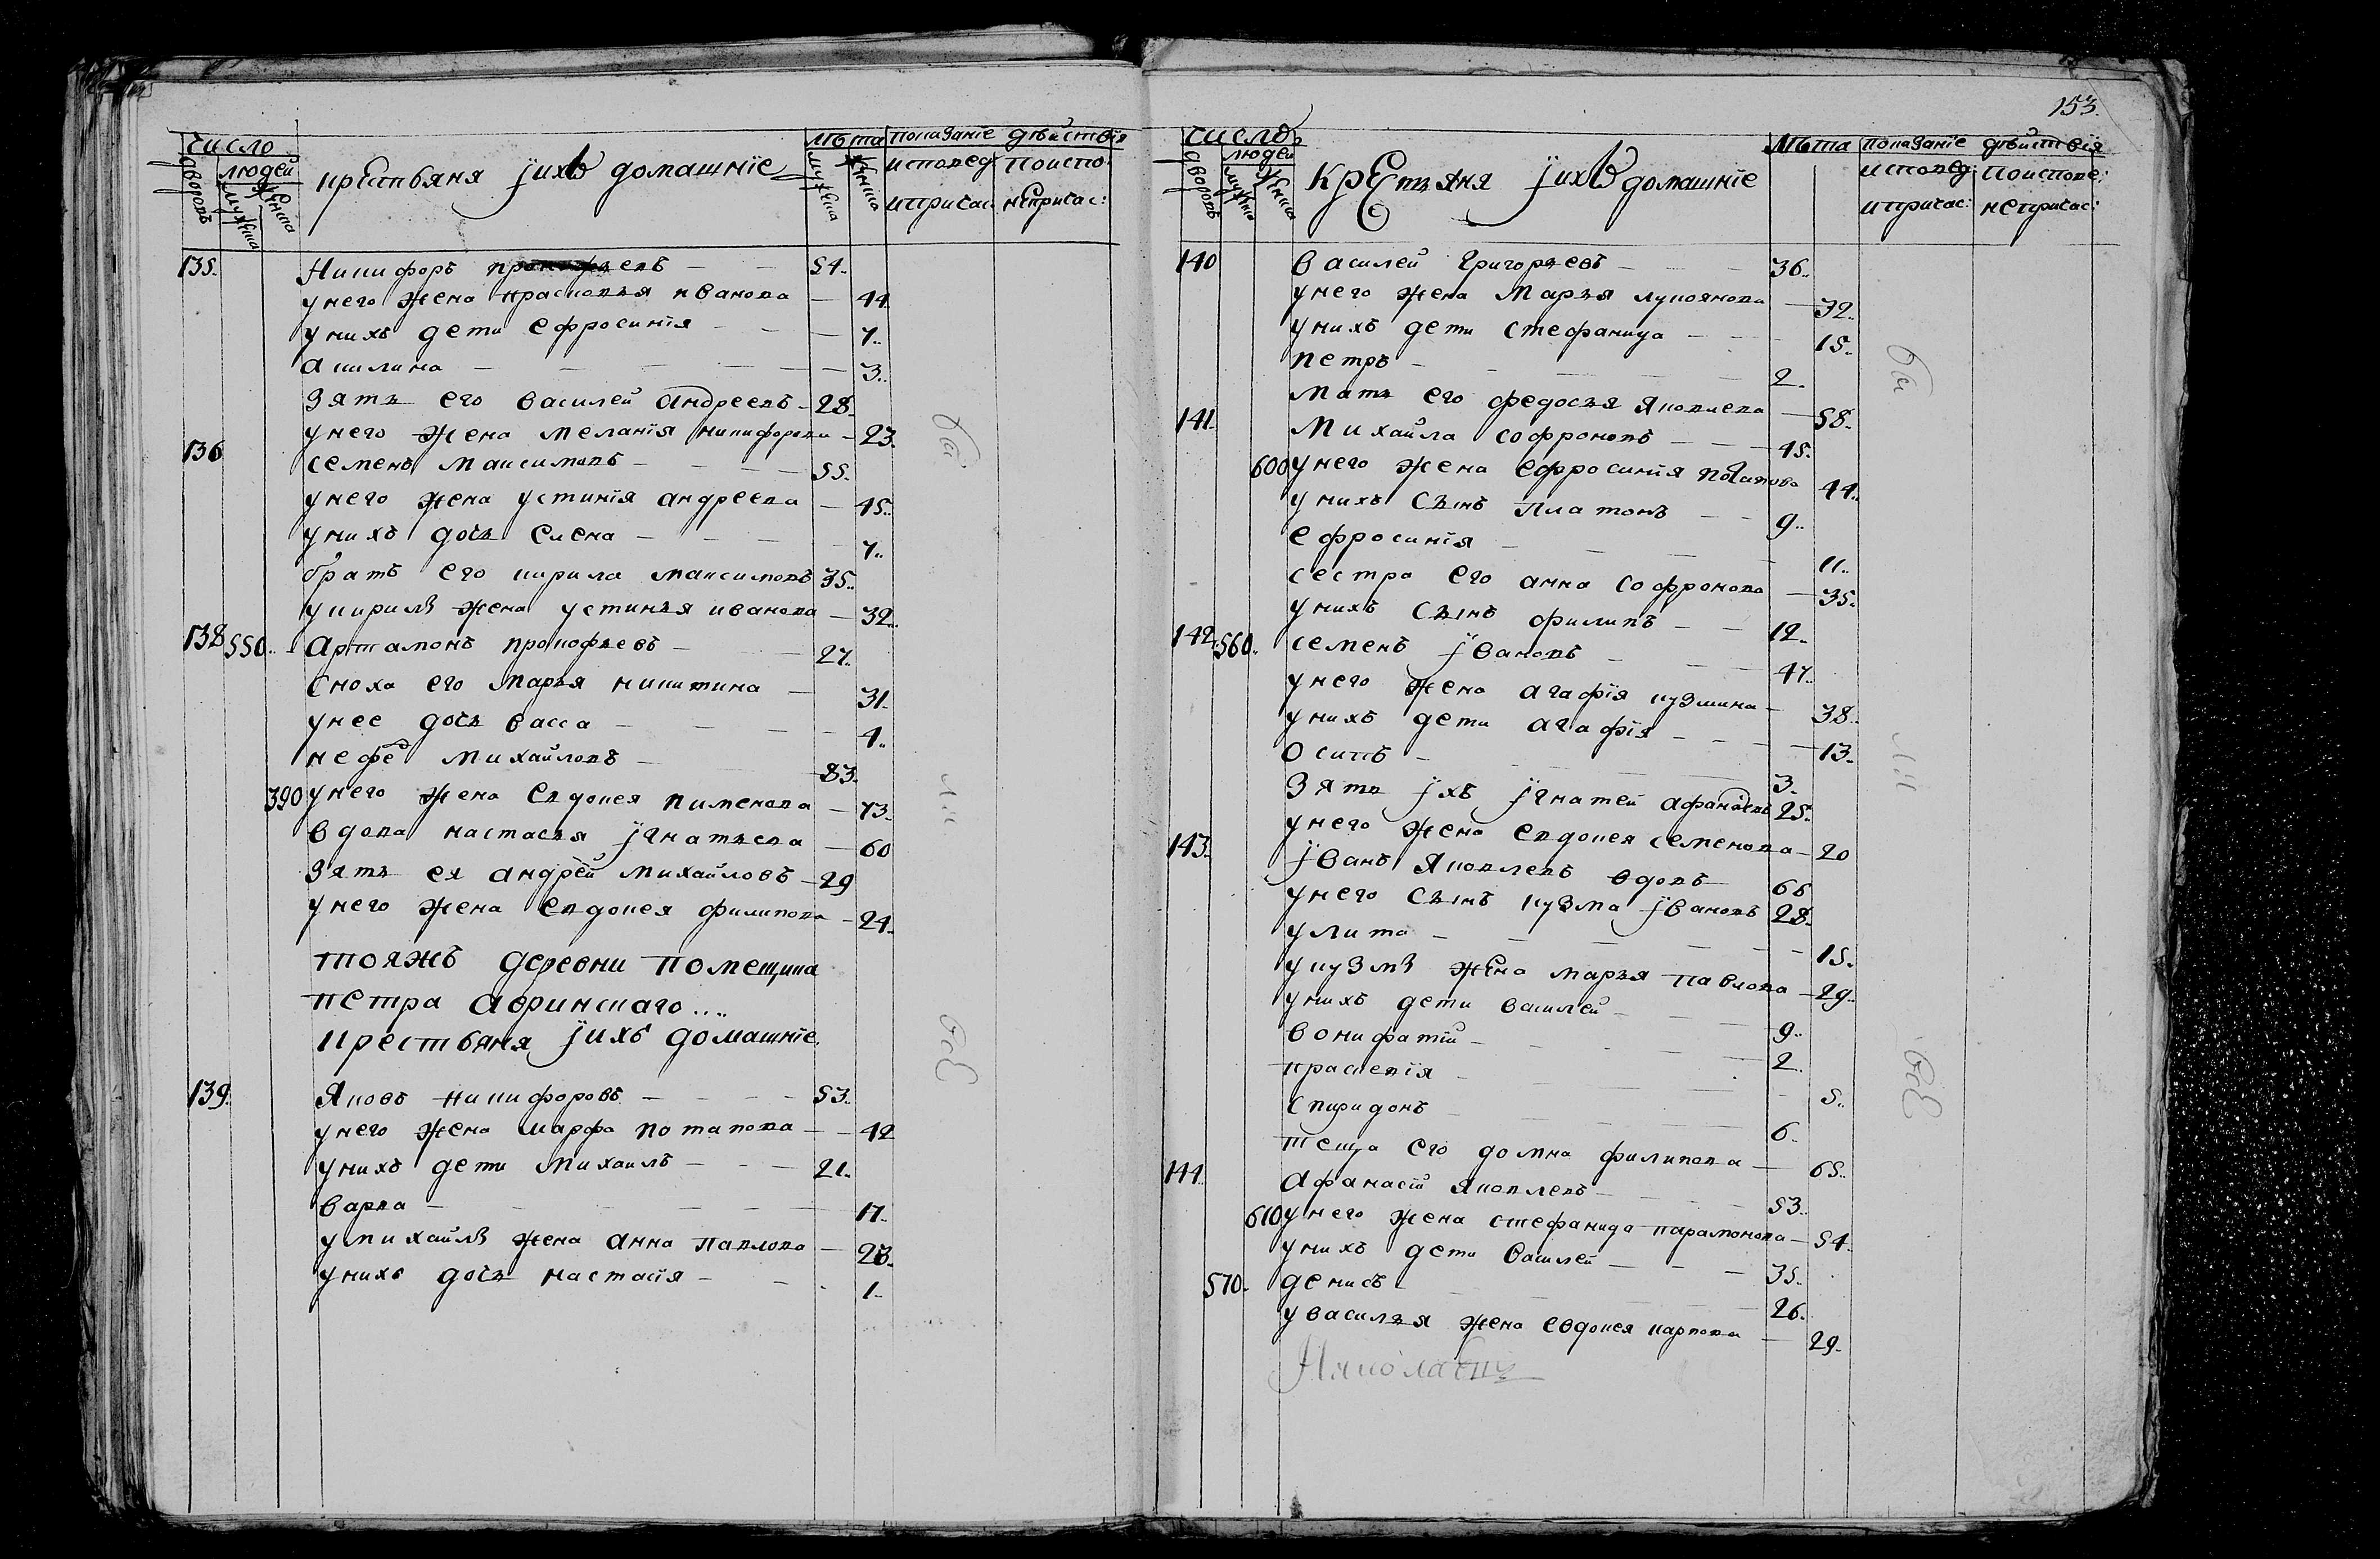 число
людей
дворовъ
мужеска
женска
крестьяня ї ихъ домашнїе
лѣта
мужеска
женска
показанїе дѣиствїя
исповед: поиспо:
ипричас: непричас:
135. Никифоръ прокофьевъ 54.
унего жена прасковья иванова 44.
унихъ дети ефросинїя 7.
акилина 3.
зять его василей андреевъ 28.
унего жена меланїя никифорова 23.
136 семенъ максимовъ 55.
унего жена устинїя андреева 45.
унихъ дочь елена 7.
братъ его кирила максимовъ 35.
укирилѣ жена устинья иванова 32.
138 550. артамонъ прокофьевъ 27.
сноха его марья никитина 31.
унее дочь васса 4.
нефе михайловъ 83.
390 унего жена евдокея пименова 73.
вдова настасья ї гнатьева 60
зять ея андрей михайловъ 29
унего жена евдокея филипова 24.
тояжъ деревни помещика
петра авринскаго....
крестьяня ї ихъ домашнїе.
139. Яковъ никифоровъ 53.
унего жена марфа потапова 42
унихъ дети михаилъ 21.
варва 17.
умихайлѣ жена анна павлова 23.
унихъ дочь настасїя 1.
бы
ли
всѣ
153.
число
людей
дворовъ
мужеска
женска
Крестьяня ї ихъ домашнїе
лѣта
показанїе дѣйствїя
исповед: поиспове:
ипричас: непричас:
140 василей григорьевъ 36.
унего жена марья лукоянова 32.
унихъ дети стефанида 15.
петръ 2.
мать его федосья яковлева 58.
141. михайла софроновъ 45.
600 унего жена ефросинїя потапова 44.
унихъ сынъ платонъ 9.
ефросинїя 11.
сестра его анна софронова 35.
унихъ сынъ филипъ 12.
142. 560. семенъ ї вановъ 47.
унего жена агафїя кузмина 38.
унихъ дети агафїя 13.
осипъ 3.
зять ї хъ ї гнатей афанасьевъ 25.
унего жена евдокея семенова 20
143. ї ванъ яковлевъ вдовъ 66
унего сынъ кузма ї вановъ 28.
улита 15.
укузмѣ жена марья павлова 29.
унихъ дети василей 9.
вонифатїй 2.
праскевїя 5.
спиридонъ 6.
теща его домна филипова 65.
144. афанасїй яковлевъ 53.
610 унего жена стефанида парамонова 54.
унихъ дети василей 35.
570. денисъ 26.
увасилья жена евдокея карпова 29.
бы
ли
всѣ